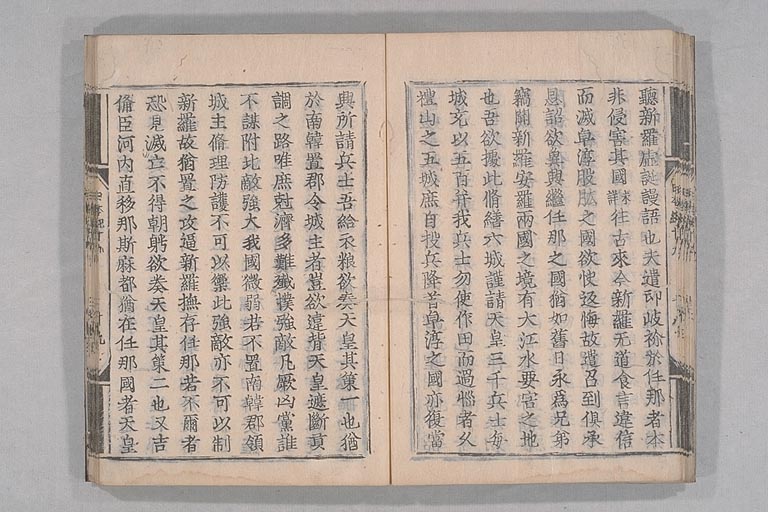 聽新羅虛誕謾語也夫遣印岐彌於任那者本
非侵害其國未詳往古來今新羅无道食言違信
而滅卓淳股肱之國欲快返悔故遣召到俱承
恩詔欲冀興繼任那之國猶如舊日永爲兄弟
竊聞新羅安羅兩國之境有大江水要害之地
也吾欲據此脩繕六城謹請天皇三千兵士每
城充以五百幷我兵士勿使作田而逼惱者久
禮山之五城庶自投兵降首卓淳之國亦復當
興所請兵士吾給衣粮欲奏天皇其策一也猶
於南韓置郡令城主者豈欲違背天皇遮斷貢
調之路唯庶尅濟多難殲撲強敵凡厥凶黨誰
不謀附北敵強大我國微弱若不置南韓郡領
城主脩理防護不可以禦此強敵亦不可以制
新羅故猶置之攻逼新羅撫存任那若不爾者
恐見滅亡不得朝聘欲奏天皇其策二也又吉
備臣河內直移那斯麻都猶在任那國者天皇